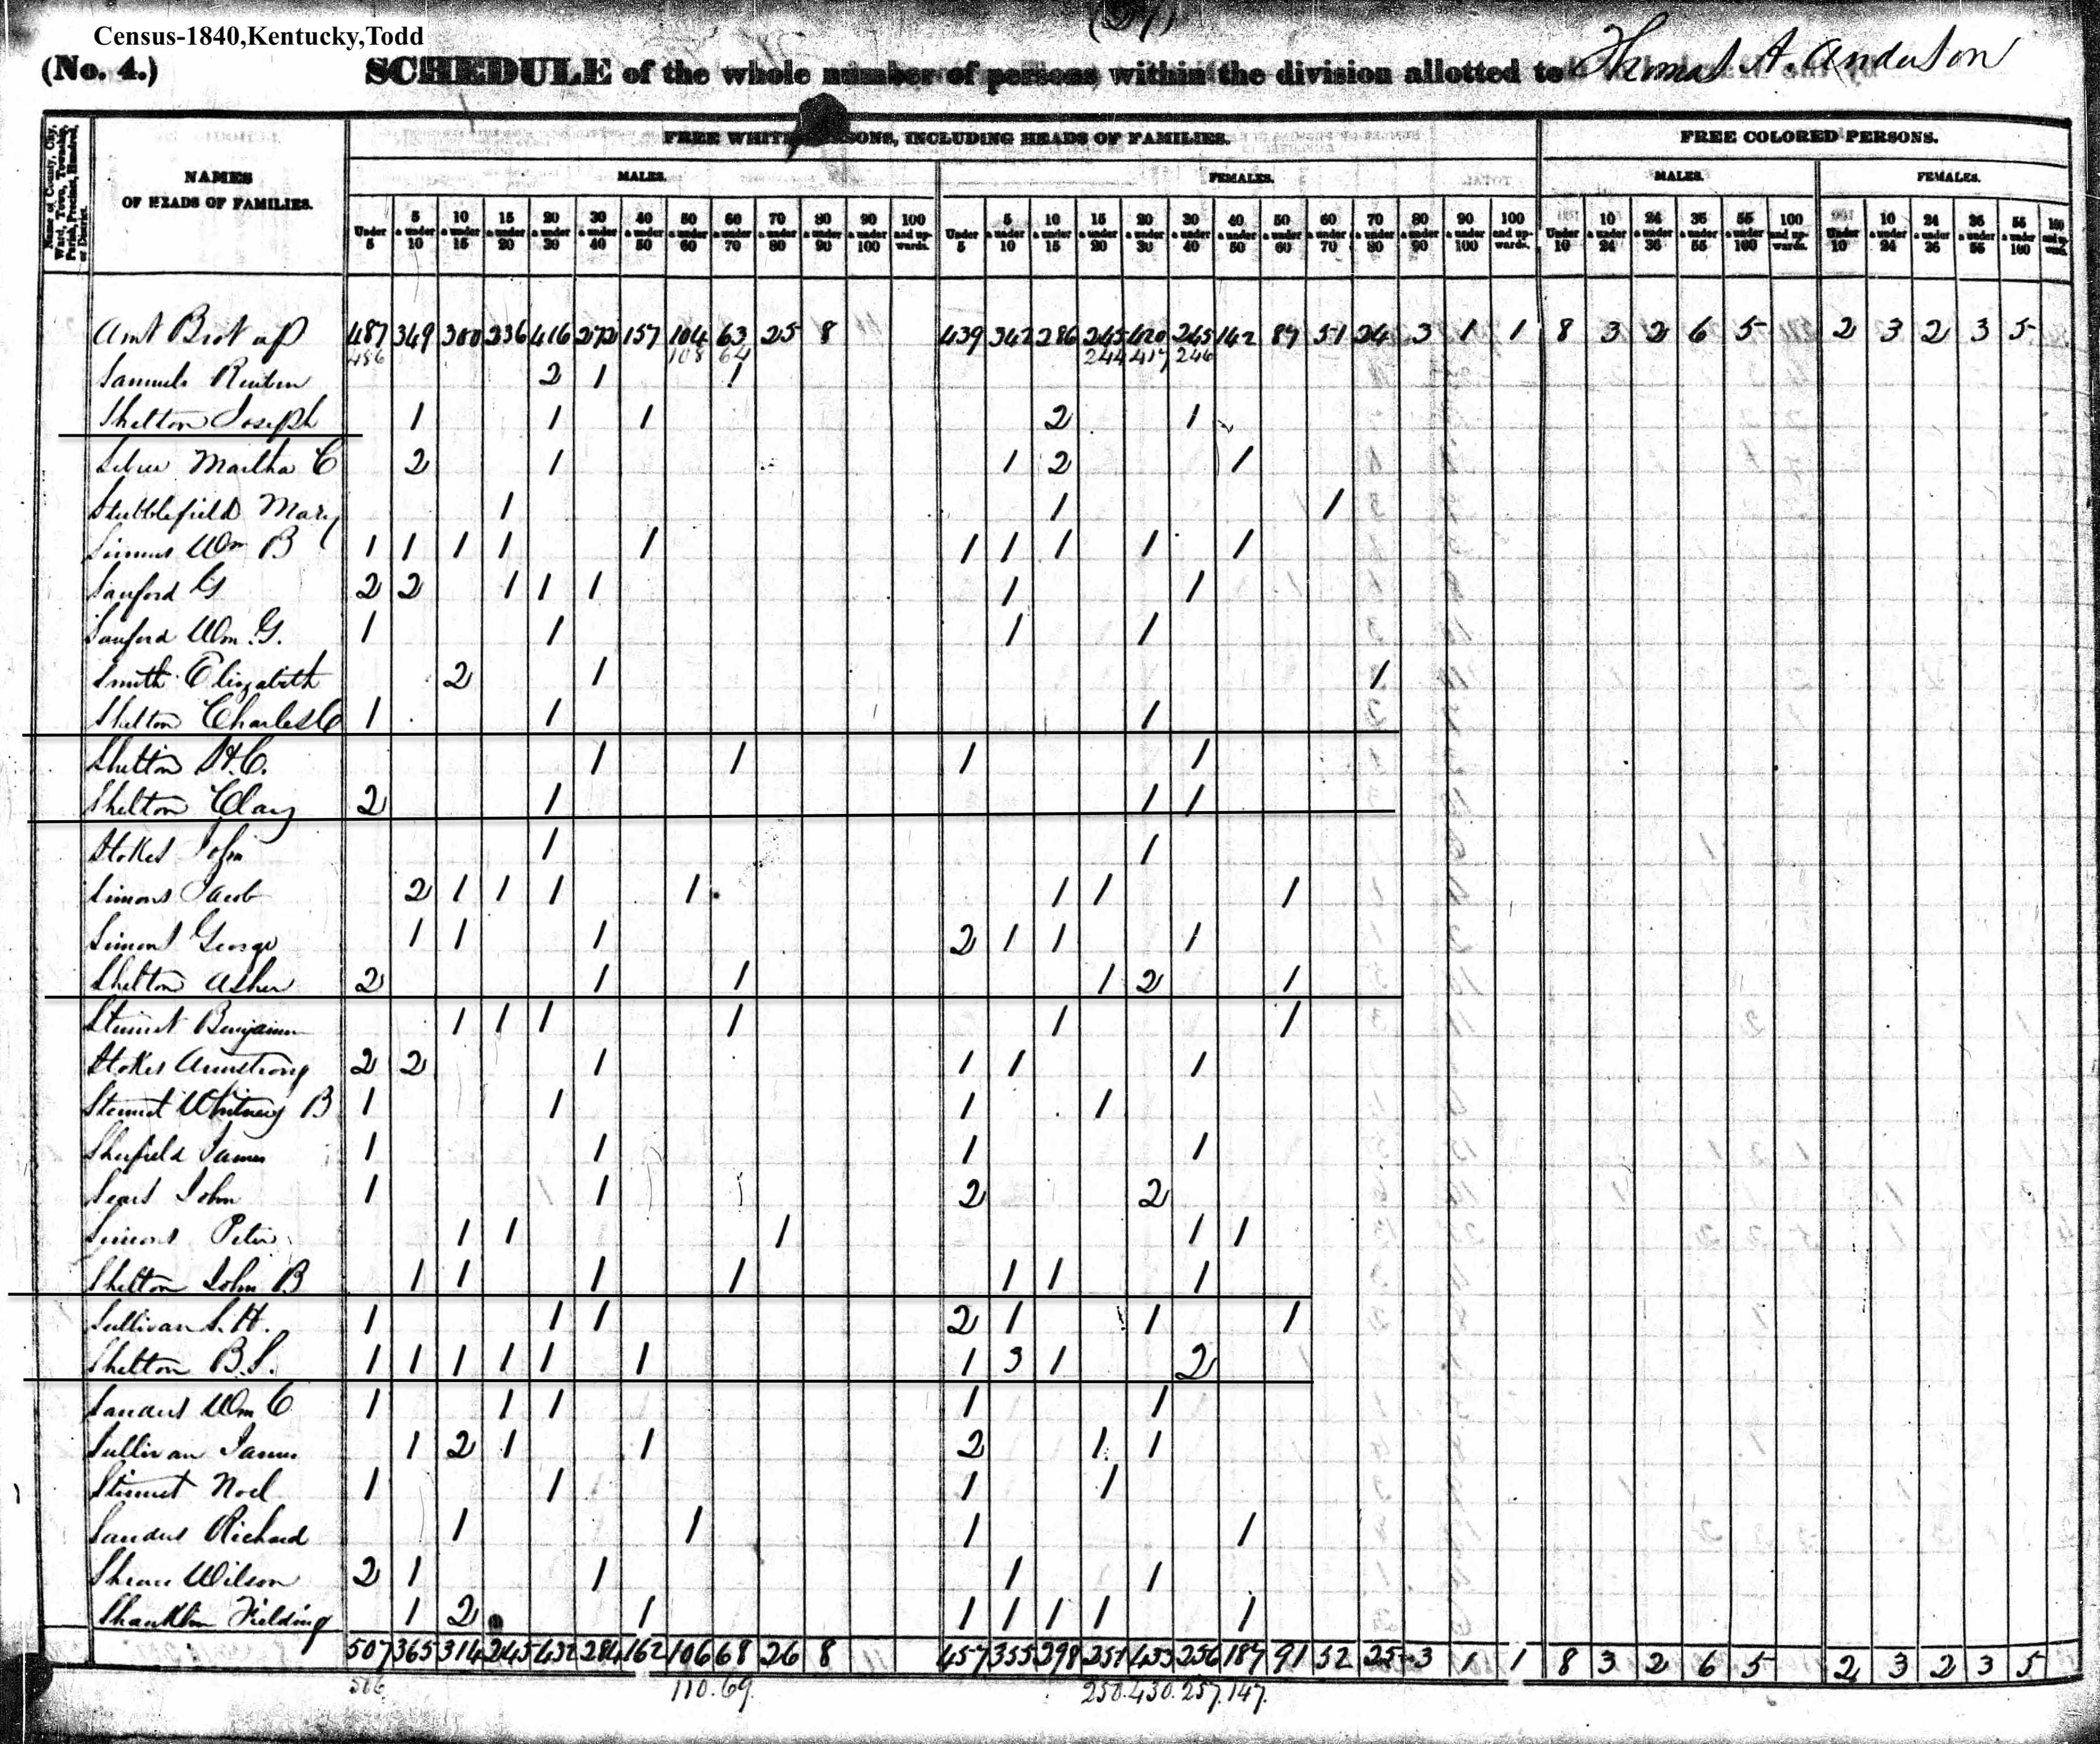 (27)
Census-1840,Kentucky,Todd
(No. 4.) SCHEDULE of the whole number of persons within the division allotted to Thomas A. Anderson
Name of County, City, Ward, Town, Township, Parish, Precinct, Hundred, or District.
NAMES OF HEADS OF FAMILIES.
FREE WHITE PERSONS, INCLUDING HEADS OF FAMILIES.
FREE COLORED PERSONS.
MALES. FEMALES. MALES. FEMALES.
Under 5 5 & under 10 10 & under 15 15 & under 20 20 & under 30 30 & under 40 40 & under 50 50 & under 60 60 & under 70 70 & under 80 80 & under 90 90 & under 100 100 and upwards. Under 5 5 & under 10 10 & under 15 15 & under 20 20 & under 30 30 & under 40 40 & under 50 50 & under 60 60 & under 70 70 & under 80 80 & under 90 90 & under 100 100 and upwards. Under 10 10 & under 24 24 & under 36 36 & under 55 55 & under 100 100 and upwards. Under 10 10 & under 24 24 & under 36 36 & under 55 55 & under 100 100 and upwards.
Amt Brot up 487 349 300 236 416 272 157 104 63 25 8 439 342 286 245 420 245 142 87 51 24 3 1 1 8 3 2 6 5 2 3 2 3 5
486 108 64 244 417 246
Samuels Reuben 2 1 1
Shelton Joseph 1 1 1 2 1
Martha C 2 1 1 2 1
Stubblefield Mary 1 1 1
Wm B 1 1 1 1 1 1 1 1 1 1
Sanford G 2 2 1 1 1 1 1
Sanford Wm G. 1 1 1 1
Smith Elizabeth 2 1 1
Shelton Charles C 1 1 1
Shelton H.C. 1 1 1 1
Shelton Clay 2 1 1 1
Stokes John 1 1
Simons Jacob 2 1 1 1 1 1 1 1
Simons George 1 1 1 2 1 1 1
Shelton Asher 2 1 1 1 2 1
Benjamin 1 1 1 1 1 1
Stokes Armstrong 2 2 1 1 1 1
Whitney B 1 1 1 1
Sherfield James 1 1 1 1
Sears John 1 1 2 2
Simons Peter 1 1 1 1 1
Shelton John B 1 1 1 1 1 1 1
Sullivan S. H. 1 1 1 2 1 1 1
Shelton B.S. 1 1 1 1 1 1 1 3 1 2
Sanders Wm C 1 1 1 1 1
Sullivan James 1 2 1 1 2 1 1
Noel 1 1 1 1
Sanders Richard 1 1 1 1
Wilson 2 1 1 1 1
Shanklin Fielding 1 2 1 1 1 1 1 1
507 365 314 245 432 284 162 106 68 26 8 457 355 298 251 433 256 187 91 52 25 3 1 1 8 3 2 6 5 2 3 2 3 5
506 110. 69. 250. 430. 257. 147.